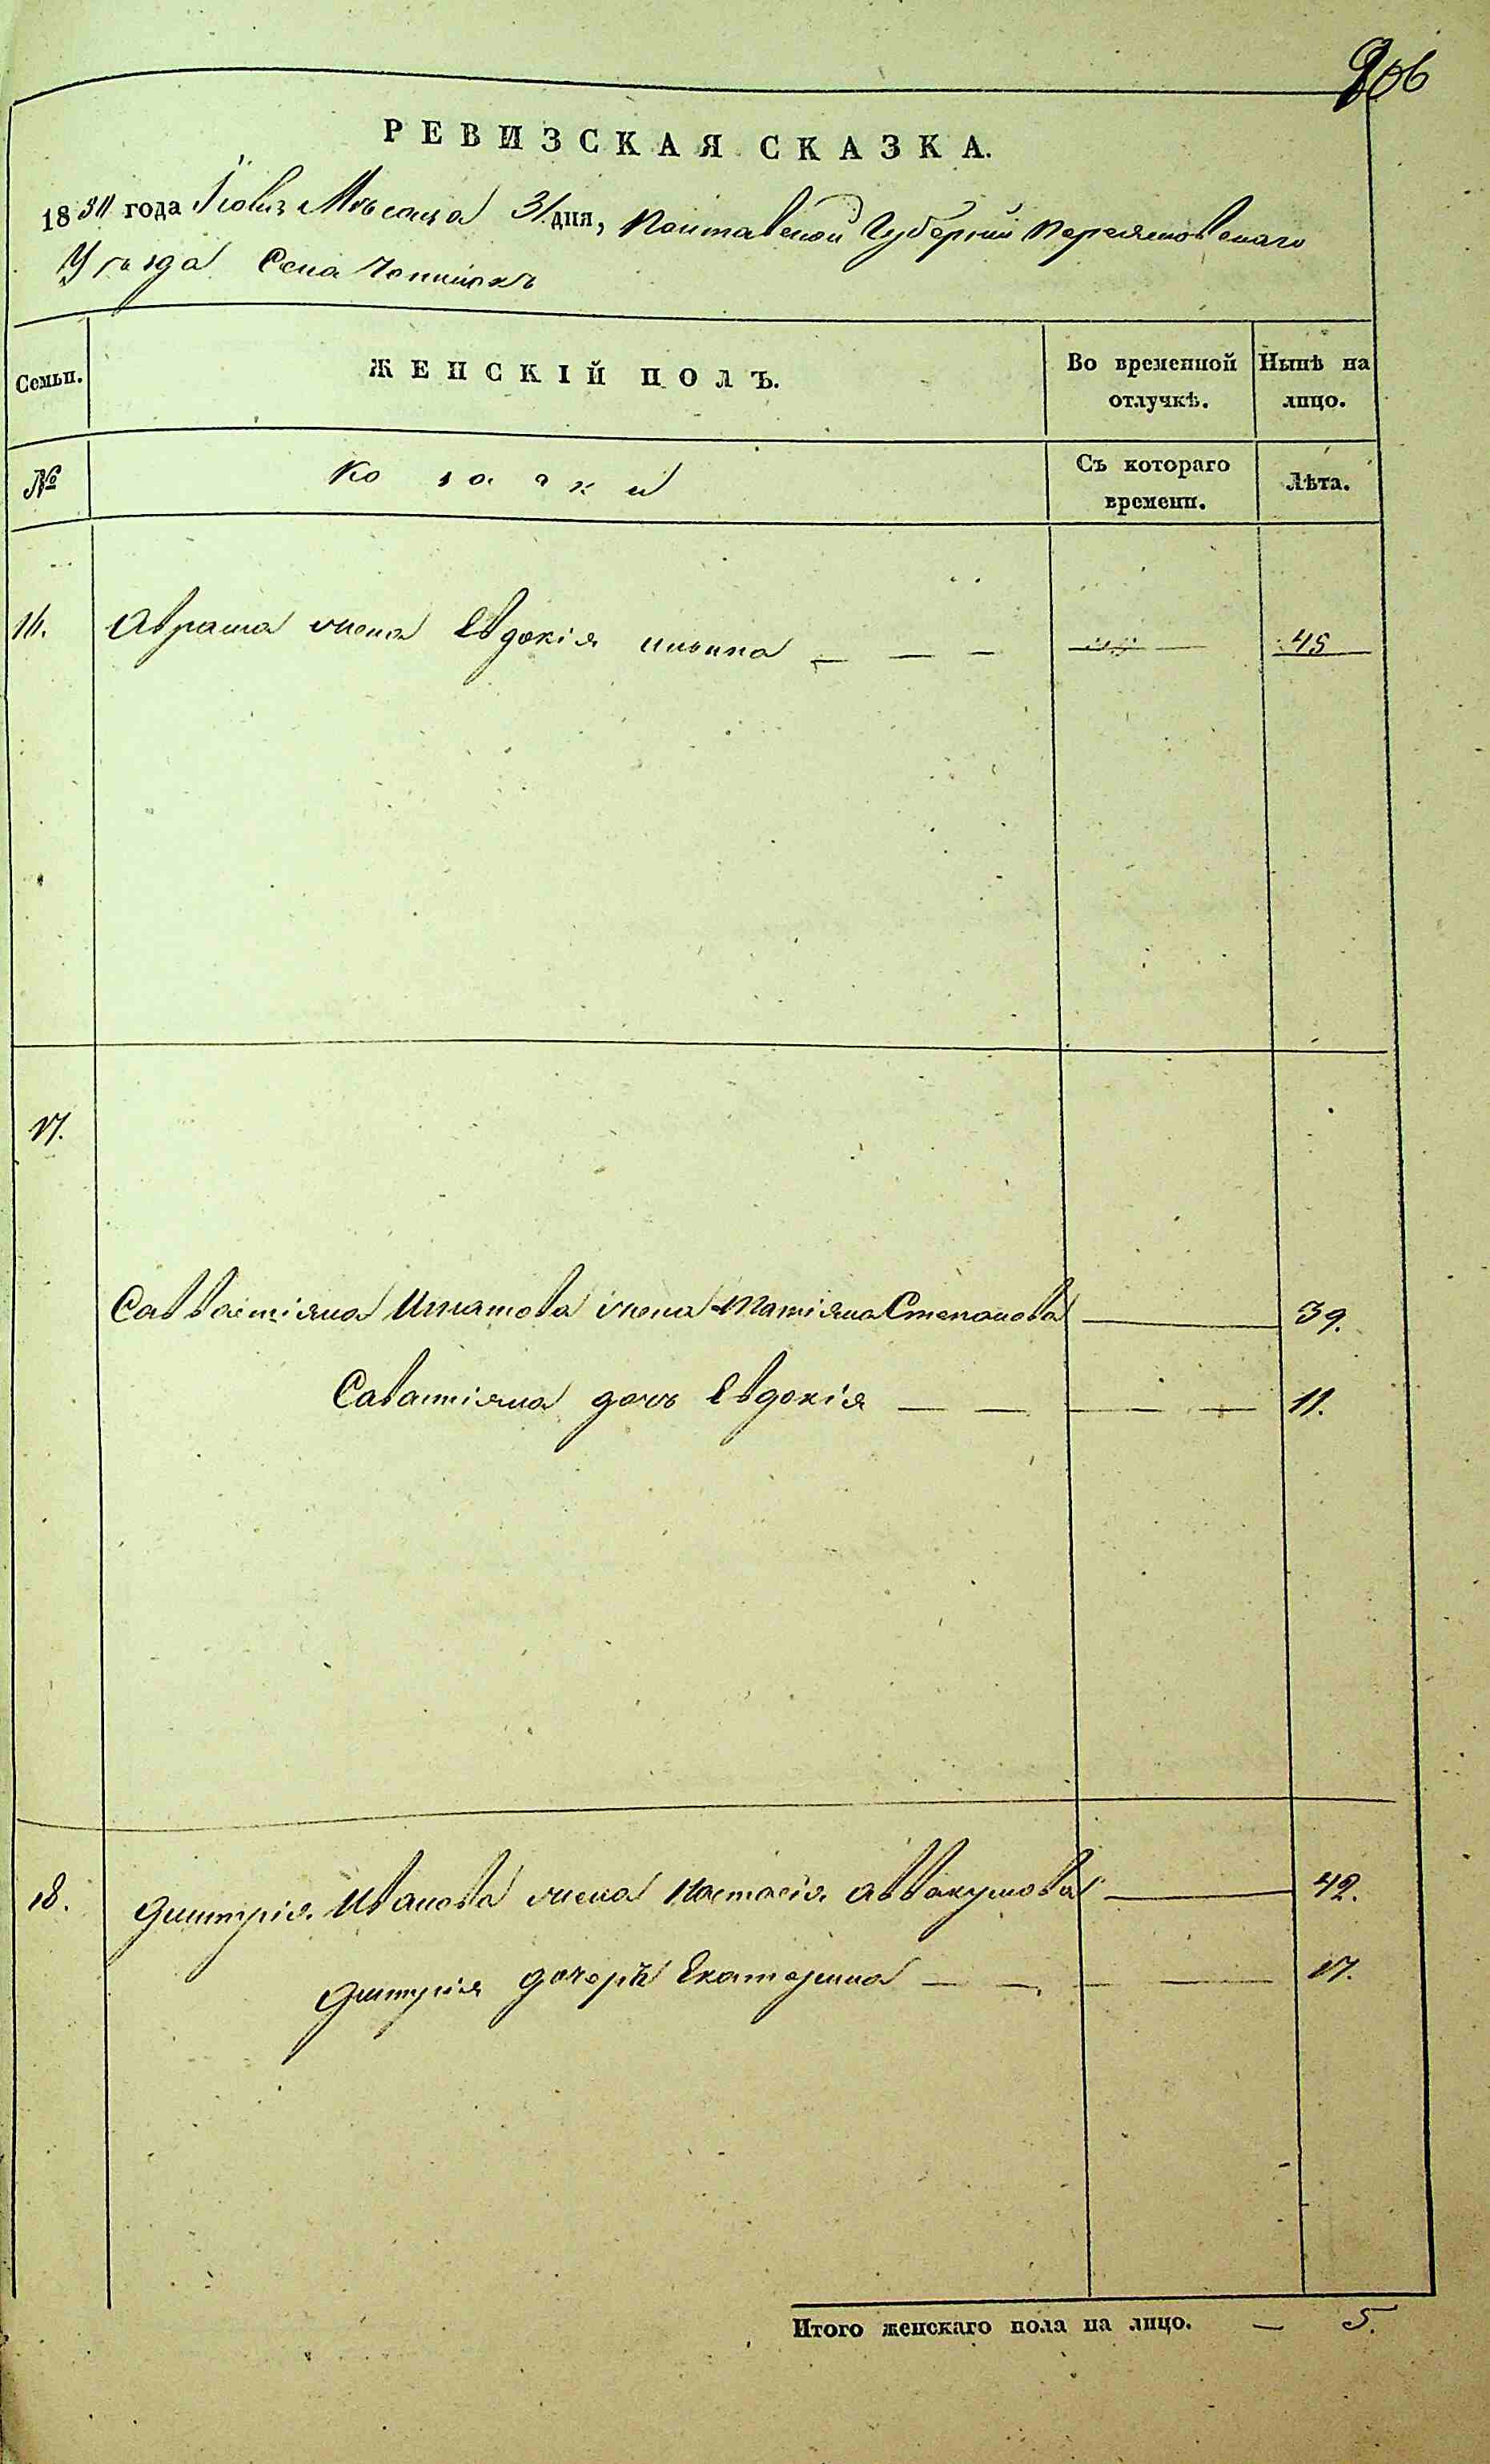 206
РЕВИЗСКАЯ СКАЗКА.
18 года Мѣсяца 31 дня, Полтавской Губерніи Переяславскаго
Уѣзда Села
Семьи. ЖЕНСКІЙ ПОЛЪ. Во временной отлучкѣ. Нынѣ на лицо.
№ Козаки Съ котораго времени. Лѣта.
16. жена Евдокія 45
17.
Савастіяна Игнатова жена Татіяна Степанова 39.
Савастіяна дочь Евдокія 11.
18. Дмитрія Иванова жена Настасія Аввакумова 42.
Дмитрія дочерѣ Екатерина 17.
Итого женскаго пола на лицо. — 5.